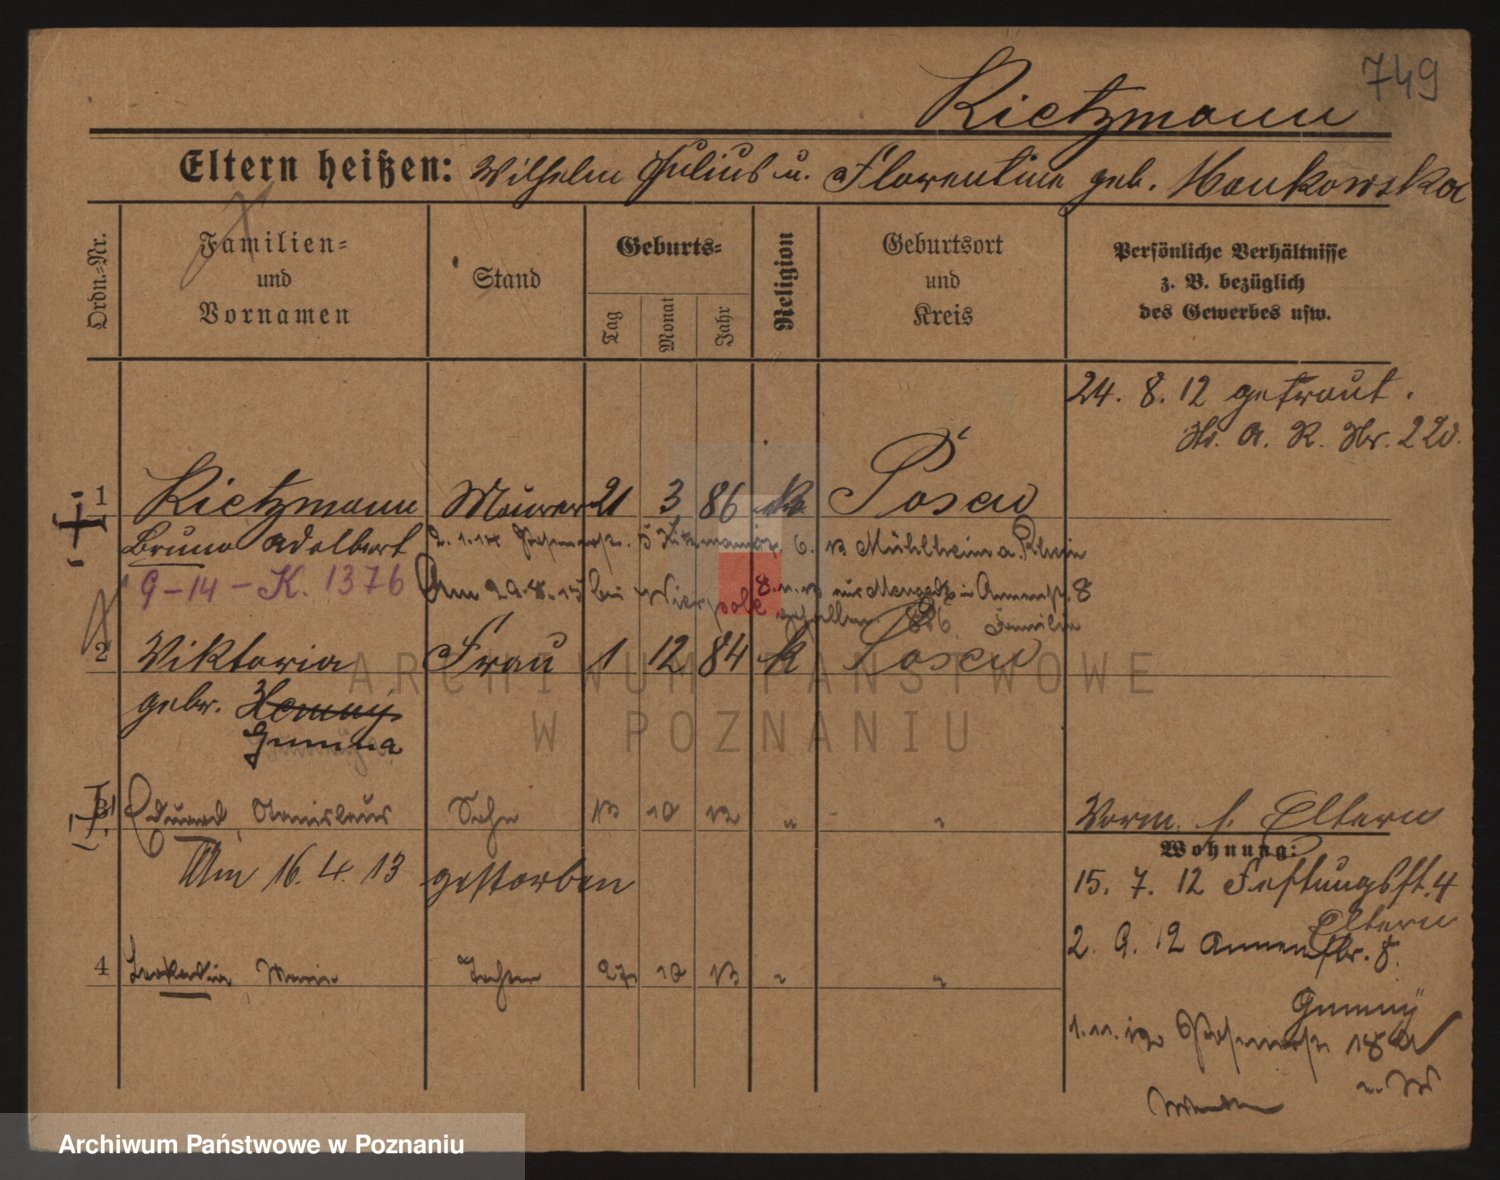 749
Rietzmann
Eltern heißen: Wilhelm Julius u. Florentine geb. Mankowska
Ordn.-Nr.
Familien=
und
Vornamen
Stand
Geburts=
Tag
Monat
Jahr
Religion
Geburtsort
und
Kreis
Persönliche Verhältnisse
z. B. bezüglich
des Gewerbes usw.
24. 8. 12 getraut.
H. A. R. Nr. 220.
1 Rietzmann Maurer 21 3 86 k Posen
Bruno Adalbert
6. 13 Mühlheim a. Rhein
9-14-K. 1376
Am
8
Familie
2 Viktoria Frau 1 12 84 k Posen
gebr. Hemmy
Gumna
ARCHIWUM PAŃSTWOWE
W POZNANIU
3 Eduard, Stanislaus Sohn 13 10 12 " "
Vorm. s. Eltern
Wohnung:
Am 16. 4. 13 gestorben
15. 7. 12 Festungsst. 4
Eltern
2. 9. 12 Annenstr. 8.
4 Leokadia Marie Tochter 27 10 13 " "
Gumny
1. 11. 12 18a
Archiwum Państwowe w Poznaniu